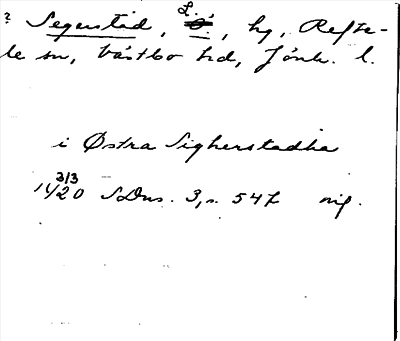 ? Segerstad, L. Ö., hg, Refte-
le sn, Västbo hd, Jönk. l.
i Østra Sigherstadha
3/3
1420 SDns. 3, s. 547 orig.